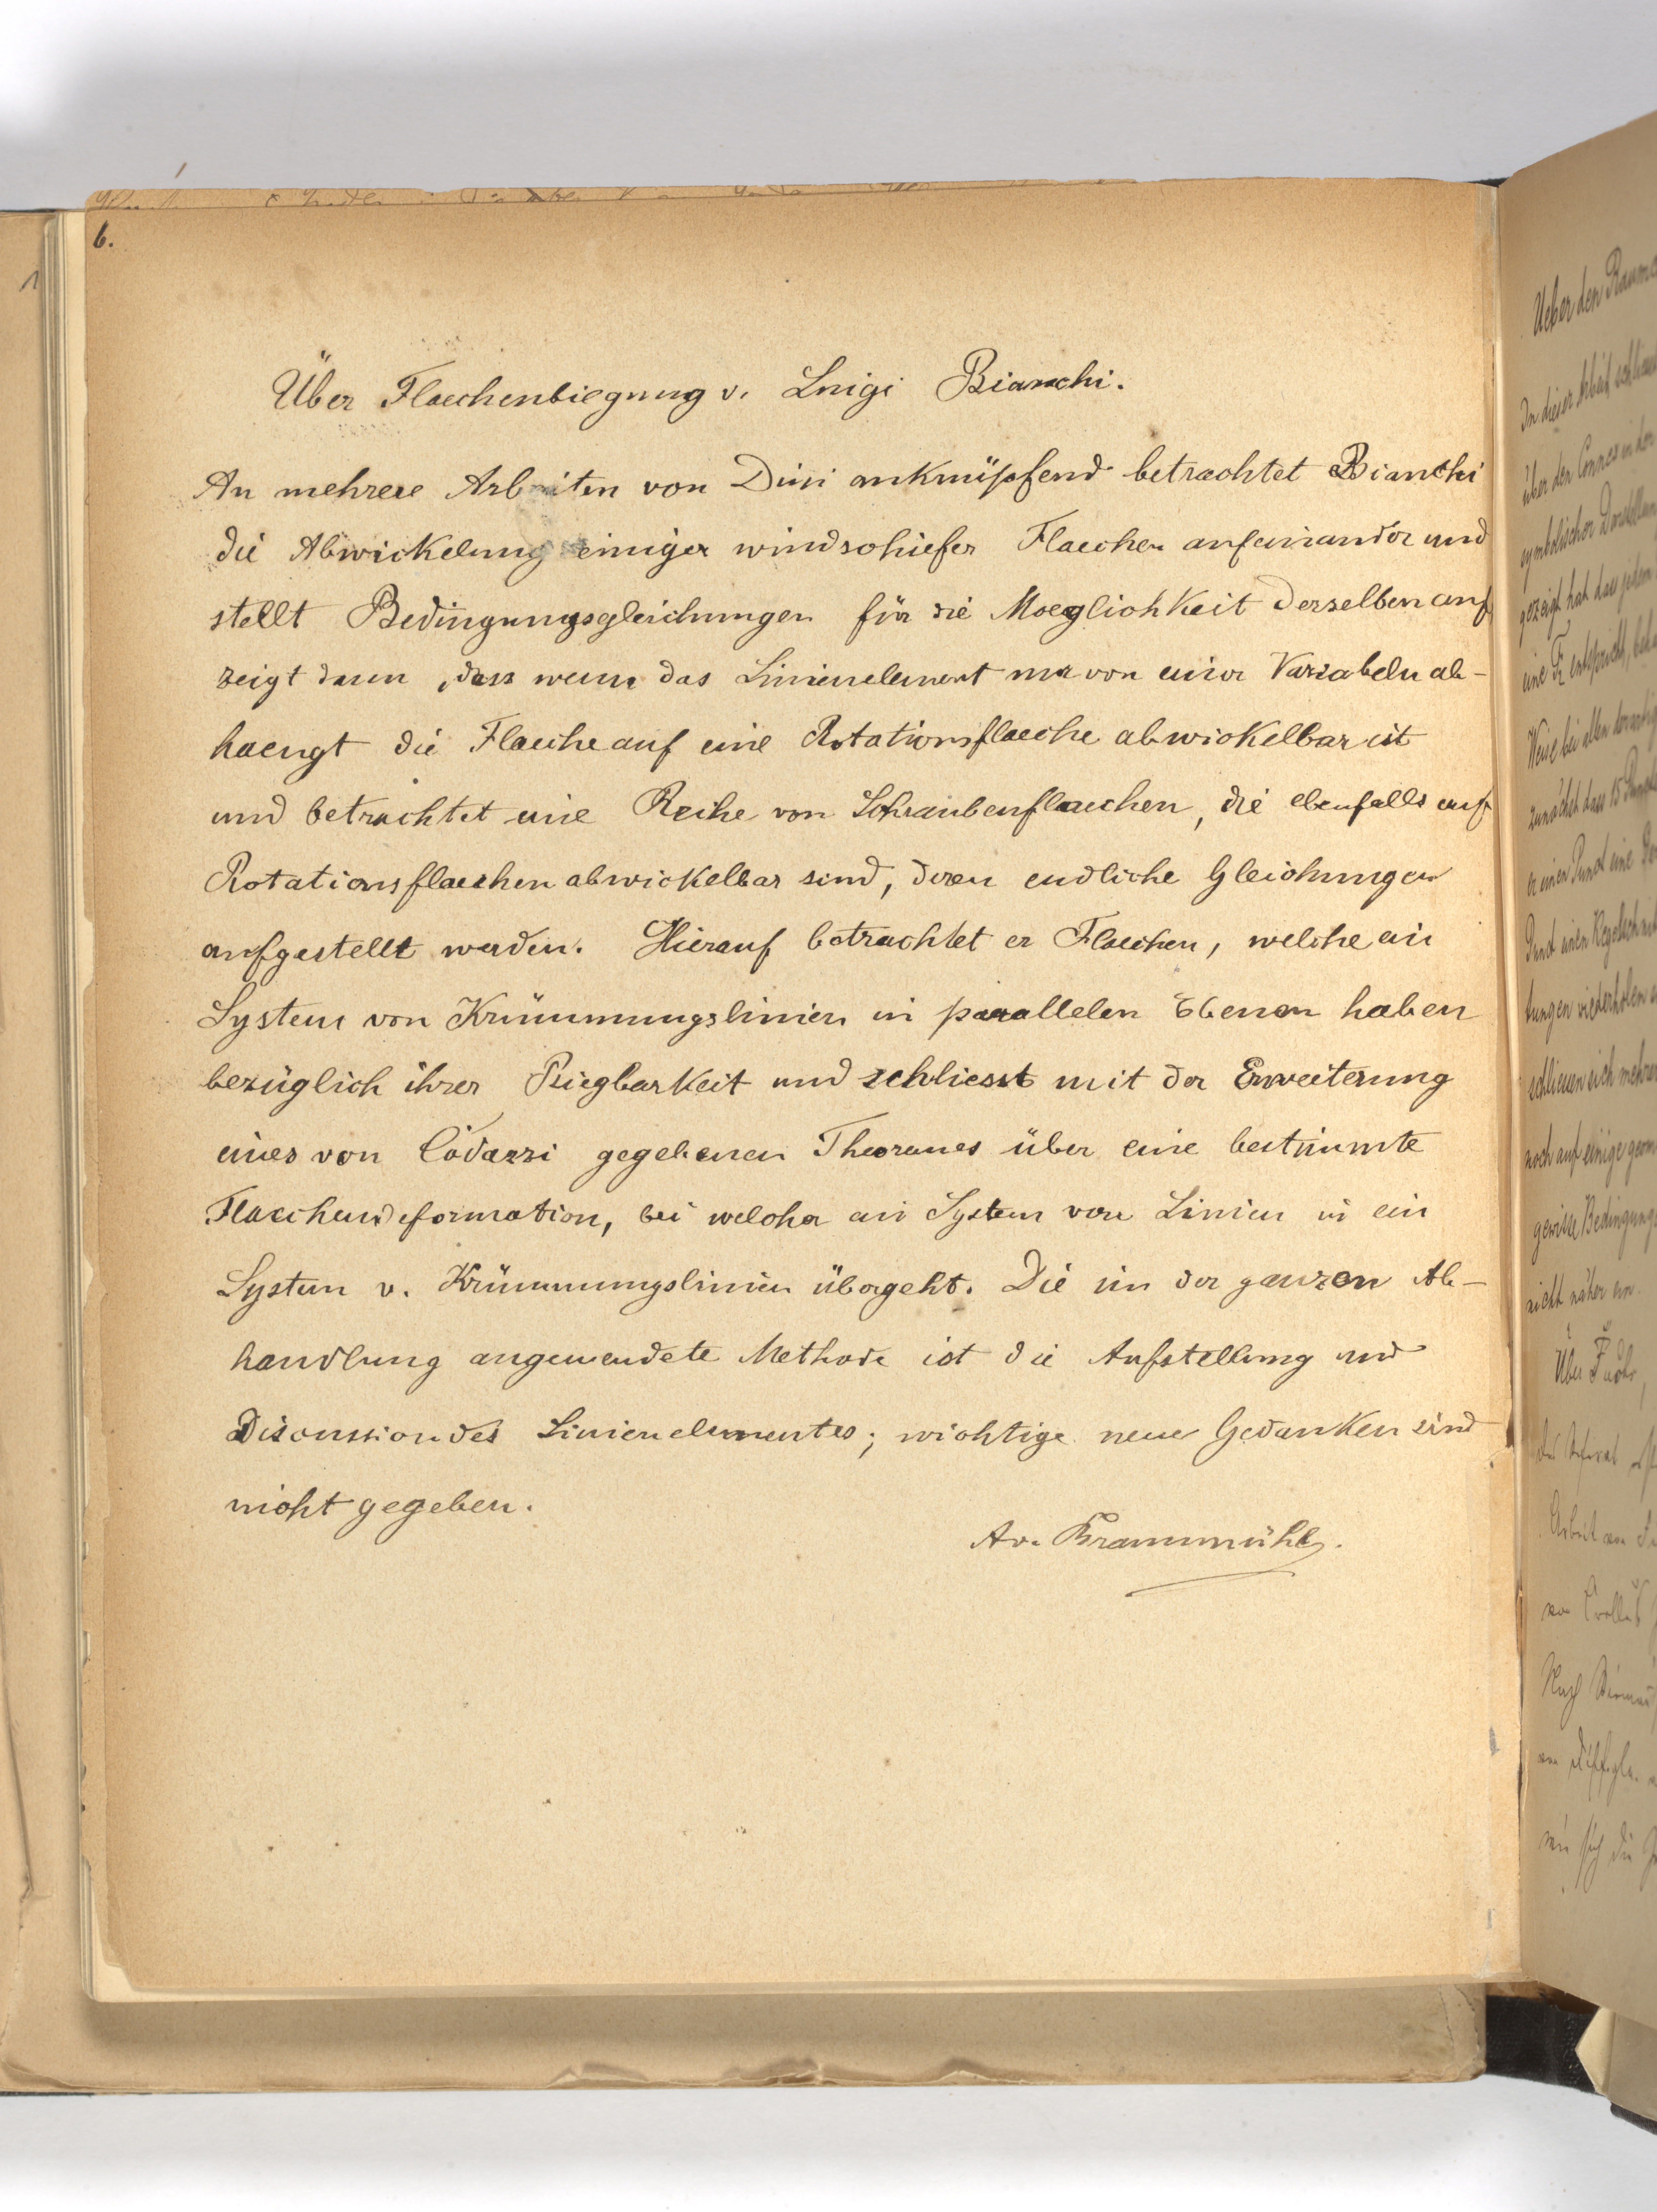 6.
Über Flaechenbiegung v. Luigi Bianchi.
An mehrere Arbeiten von Dini anknüpfend betrachtet Bianchi
die Abwickelung einiger windschiefer Flaechen aufeinander und
stellt Bedingungsgleichungen für die Moeglichkeit derselben auf
zeigt dann, dass wenn das Linienelement nur von einer Variabeln ab-
haengt die Flaeche auf eine Rotationsflaeche abwickelbar ist
und betrachtet eine Reihe von Schraubenflaechen, die ebenfalls auf
Rotationsflaechen abwickelbar sind, deren endliche Gleichungen
aufgestellt werden. Hierauf betrachtet er Flaechen, welche ein
System von Krümmungslinien in parallelen Ebenen haben
bezüglich ihrer Biegbarkeit und schliesst mit der Erweiterung
eines von Codazzi gegebenen Theoremes über eine bestimmte
Flaechendeformation, bei welcher ein System von Linien in ein
System v. Krümmungslinien übergeht. Die in der ganzen Ab-
handlung angewendete Methode ist die Aufstellung und
Discussion des Linienelementes; wichtige neue Gedanken sind
nicht gegeben.
Av. Braunmühl.
Ueber den
In dieser Arbeit
über den Connex in der
symbolischer
gezeigt hat dass jedem
eine
Weise bei allen
zunächst dass 15
er einen Punct eine
Punct einen Kegelschnitt
tungen wiederholen
schliessen sich mehrere
noch auf einige
gewisse Bedingungs
nicht näher an.
Über